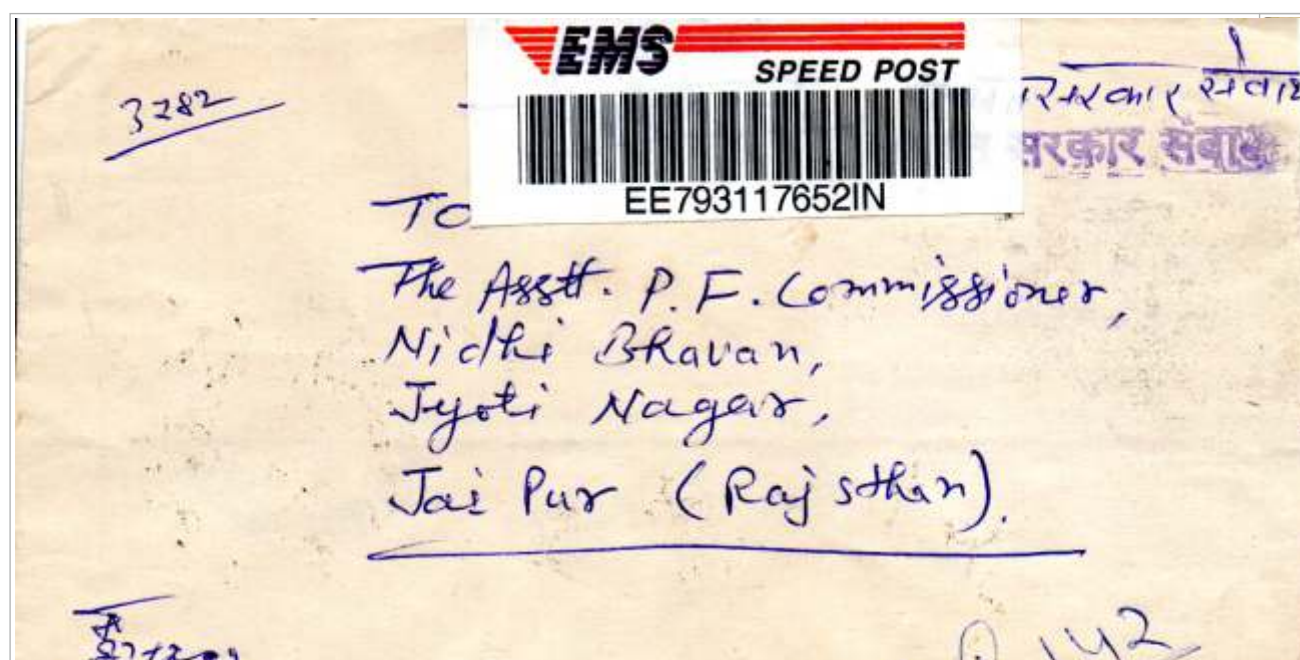 EMS
SPEED POST
EE793117652IN
3282
सरकार
सरकार
To
The Asstt. P. F. Commissioner,
Nidhi Bhavan,
Jyoti Nagar,
Jai Pur (Rajsthan).
142